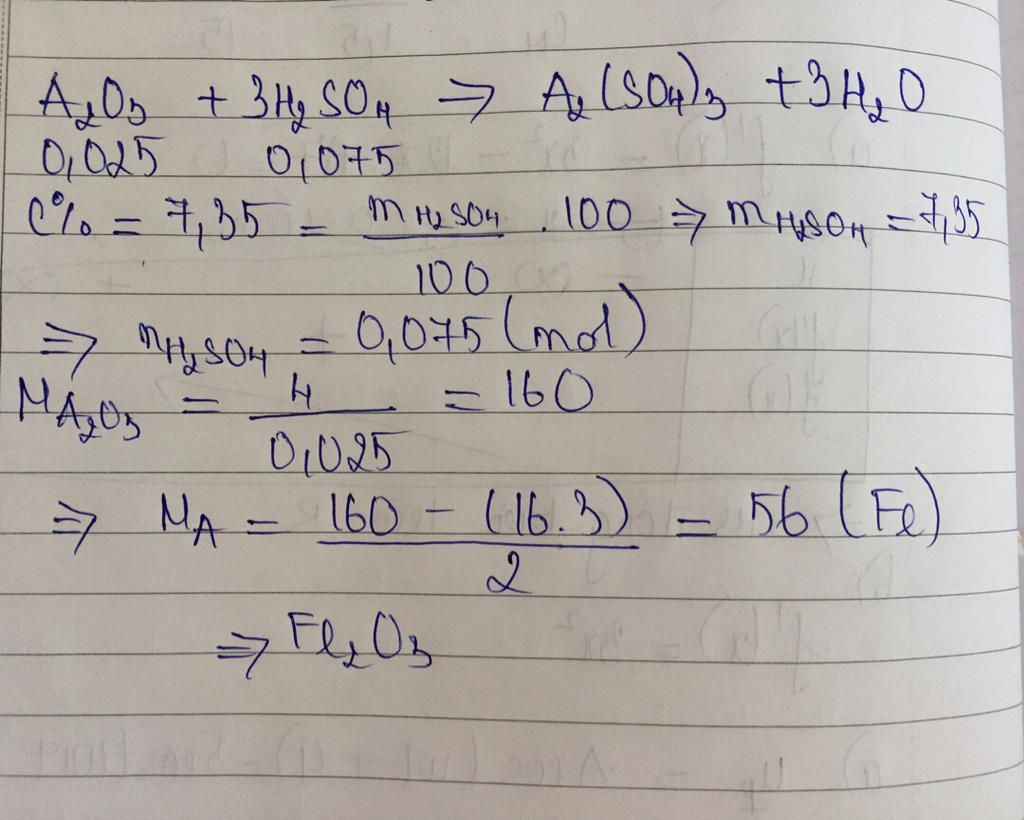 A₂O₃ + 3H₂SO₄ ⇒ A₂(SO₄)₃ + 3H₂O
0,025 0,075
C% = 7,35 = mH₂SO₄/100 . 100 ⇒ mH₂SO₄ = 7,35
⇒ nH₂SO₄ = 0,075 (mol)
MA₂O₃ = 4/0,025 = 160
⇒ MA = 160 - (16.3)/2 = 56 (Fe)
⇒ Fe₂O₃